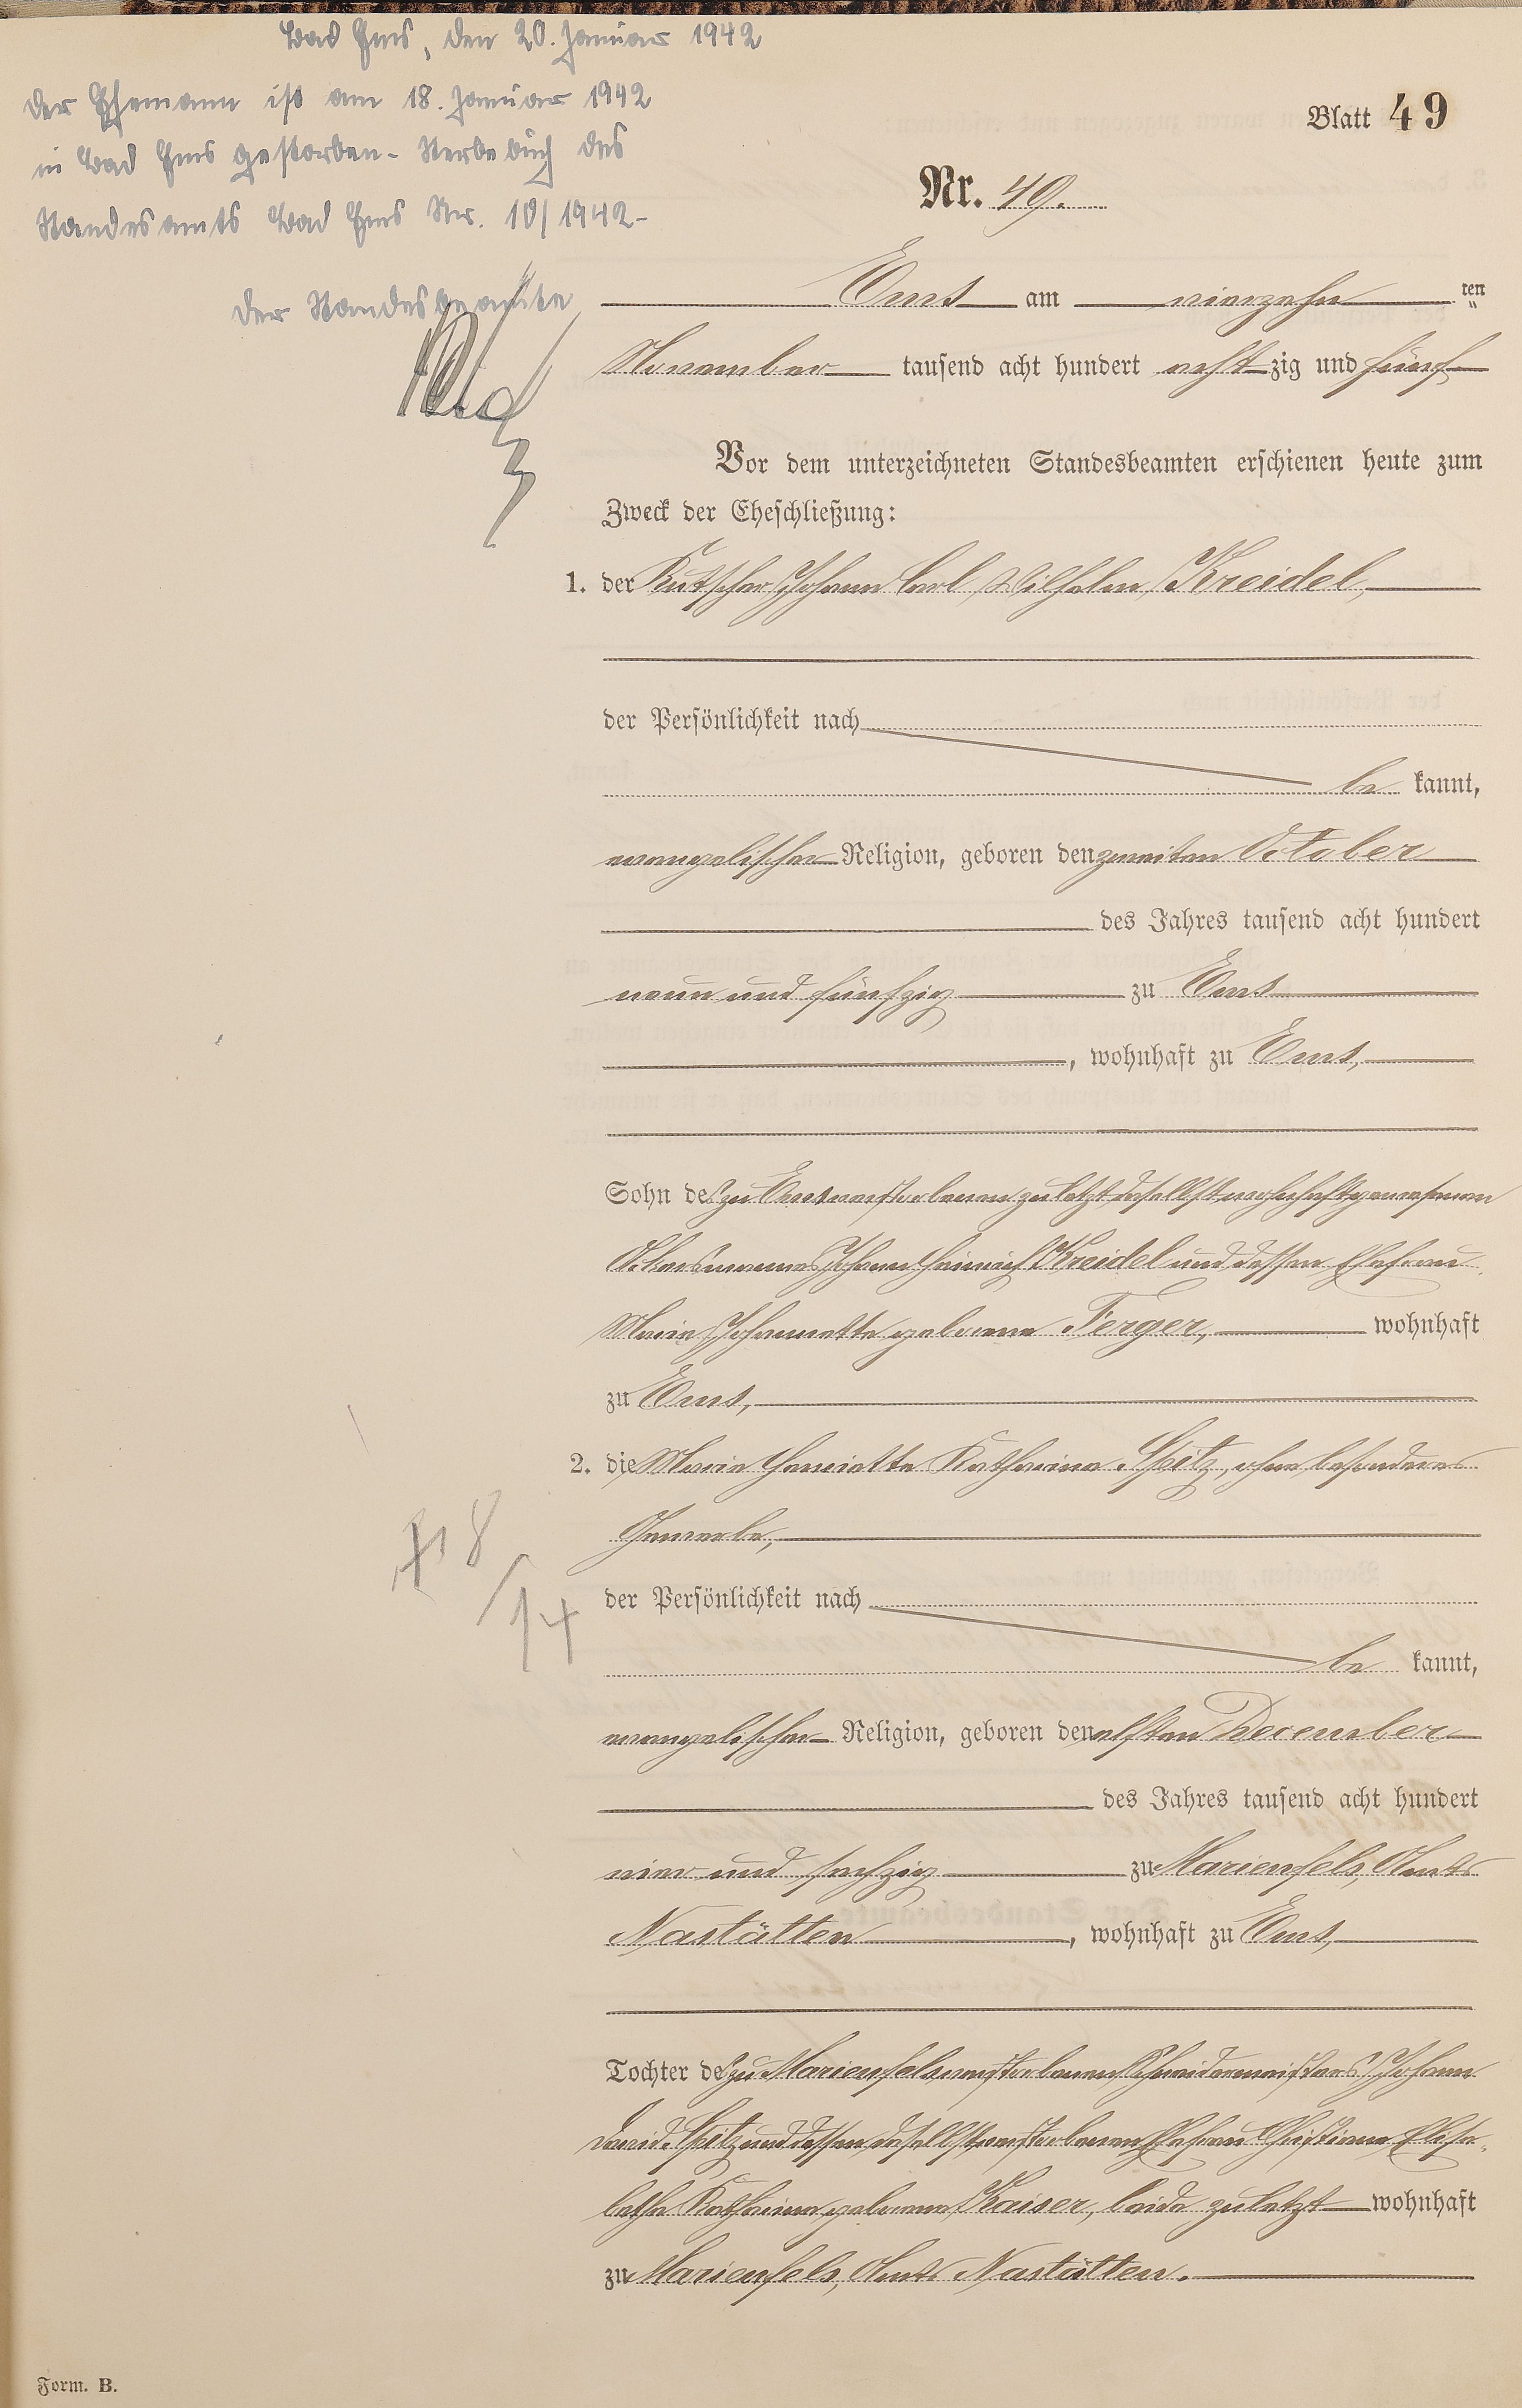 Bad Ems, den 20. Januar 1942
Der Ehemann ist am 18. Januar 1942
in Bad Ems gestorben - Sterbebuch des
Standesamts Bad Ems Nr. 10/1942 -
Der Standesbeamte
Blatt 49
Nr. 49.
Ems am vierzehn ten
November tausend acht hundert achtzig und fünf
Vor dem unterzeichneten Standesbeamten erschienen heute zum
Zweck der Eheschließung:
1. der Kutscher Johann Carl Wilhelm Kreidel,
der Persönlichkeit nach
be kannt,
evangelischer Religion, geboren den zweiten October
des Jahres tausend acht hundert
neun und fünfzig zu Ems
, wohnhaft zu Ems,
Sohn des zu Ems verstorbenen zuletzt daselbst wohnhaft gewesenen
Ackersmannes Johann Heinrich Kreidel und dessen Ehefrau
Marie Johannette geborene Ferger, wohnhaft
zu Ems,
2. die Marie Henriette Katharina Spitz, ohne besonderes
Gewerbe,
der Persönlichkeit nach
be kannt,
evangelischer Religion, geboren den elften December
des Jahres tausend acht hundert
vier und sechzig zu Marienfels, Amts
Nastätten, wohnhaft zu Ems,
Tochter des zu Marienfels verstorbenen Schneidermeisters Johann
David Spitz und dessen daselbst verstorbenen Ehefrau Christiane Elisa-
betha Katharina geborene Kaiser, beide zuletzt wohnhaft
zu Marienfels, Amts Nastätten.
Form. B.